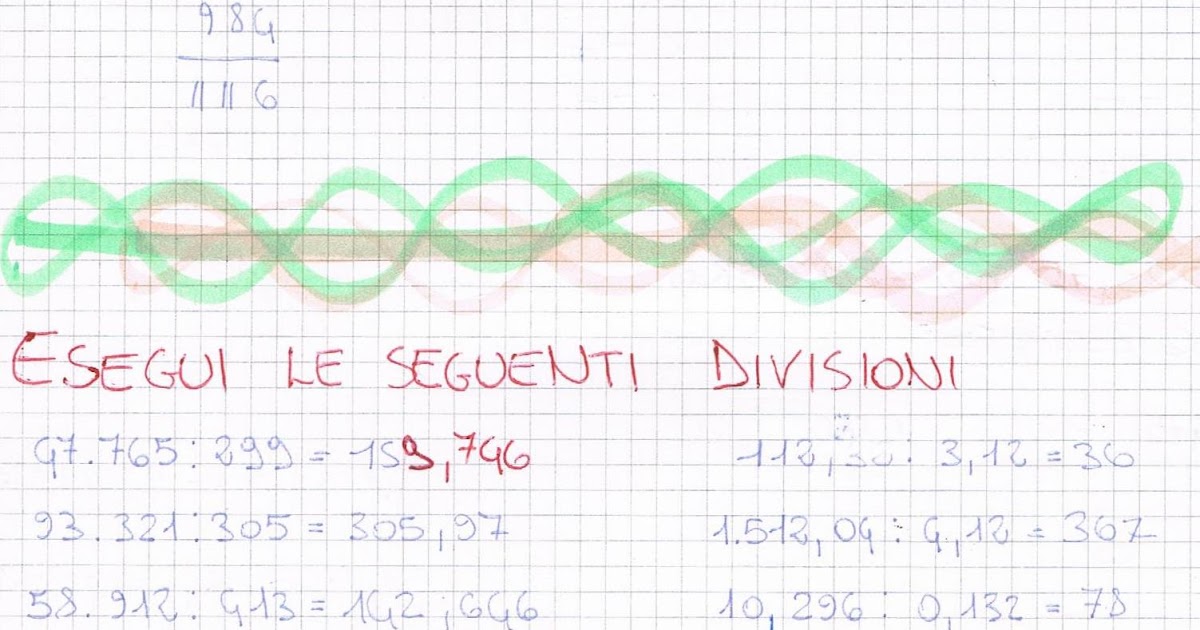 984
1116
ESEGUI LE SEGUENTI DIVISIONI
47.765 : 299 = 159,746 : 3,12 = 36
93.321 : 305 = 305,97 1.512,04 : 4,12 = 367
58.912 : 413 = 142,646 10,296 : 0,132 = 78